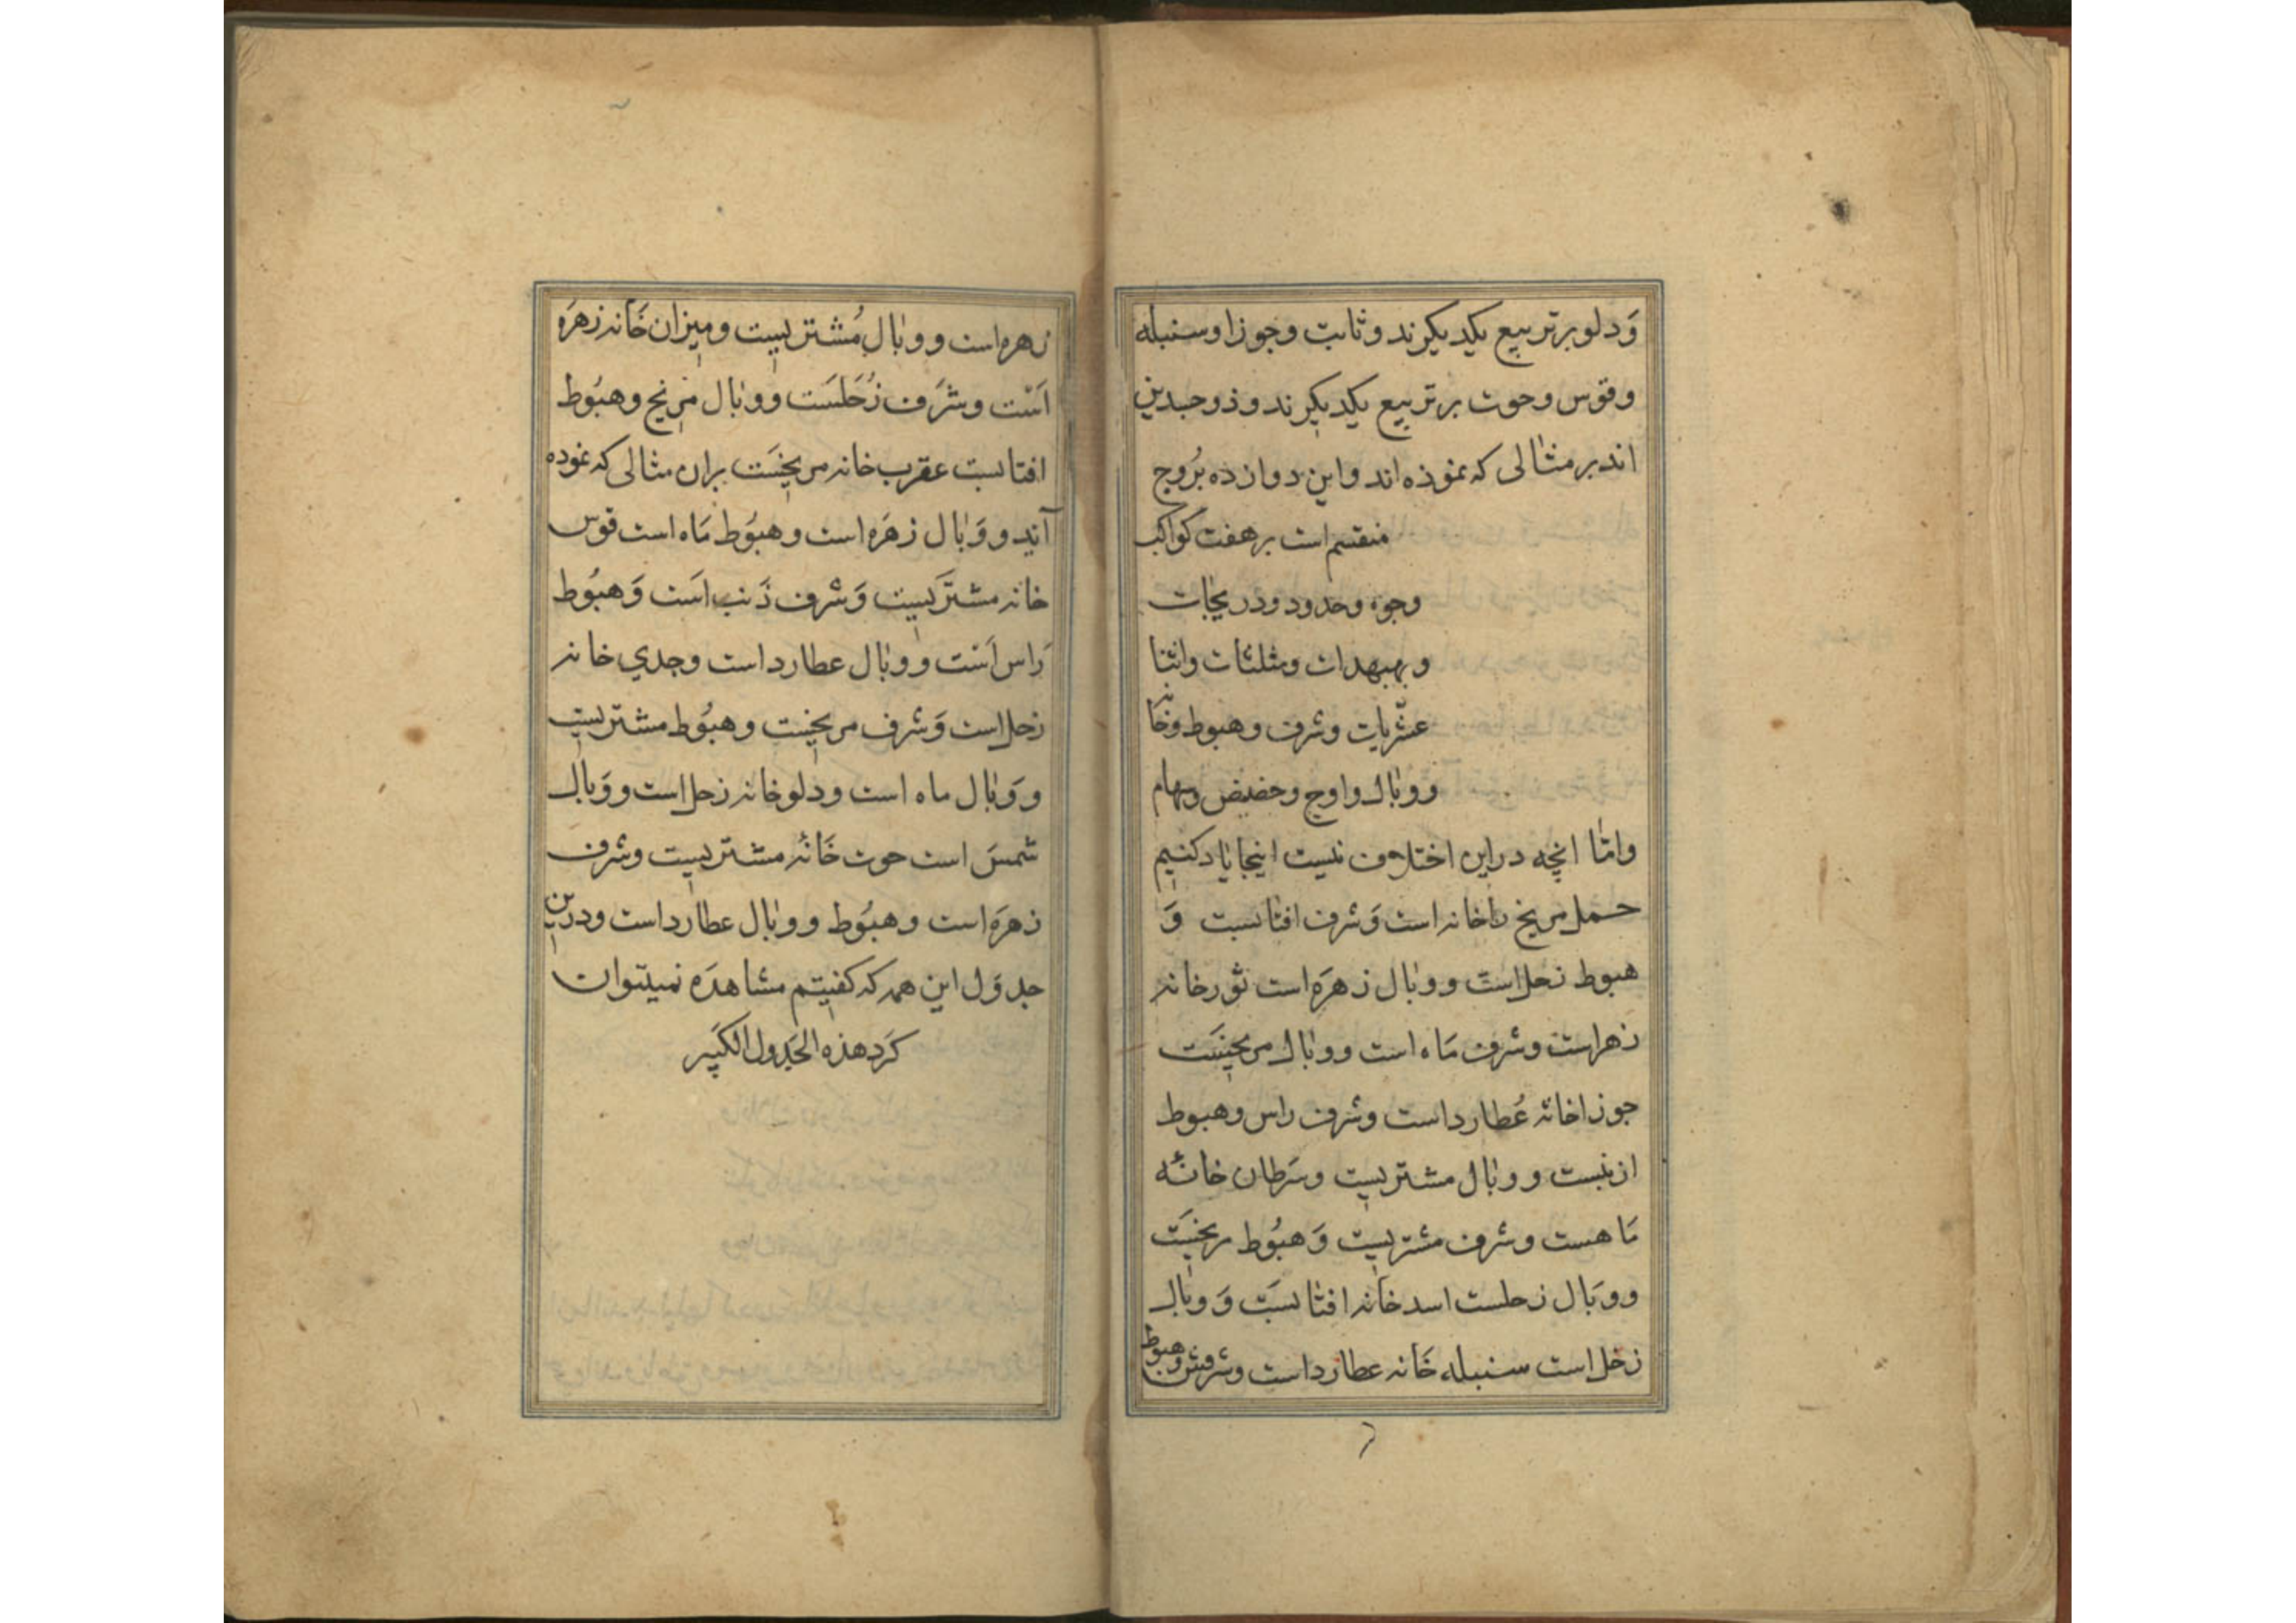 وَدلو بر تربیع یکدیکرند و ثابت و جوزا و سنبله
و قوس و حوت بر تربیع یکدیکرند و ذو جسدین
اند بر مثالی که نموذه اند و این دوازده بُروج
منقسم است بر هفت کواکب
وجوه و حدود و دریجات
و بهبهدات و مثلثات و اثنا
عشّریات و شرف و هبوط و خانه
و وبال و اوج و حضیض و سهام
و امّا انچه در این اختلاف نیست اینجا یاد کنیم
حمل مریخ را خانه است وَ شرف افتابست وَ
هبوط زحل است و وبال زهرَه است ثور خانه
زهراست و شرف مَاه است و وبال مریخیسَت
جوزا خانه عُطارد است و شرف راس و هبوط
ازنبست و وبال مشتریست و سَرطان خانهٔ
مَاهست و شرف مشتریست وَ هبُوط مریخیسَت
و وبَال زحلست اسد خانه افتابسَت وَ وبال
زحل است سنبله خَانه عطارد است و شرفش و هبوط
زهره است و وبال مُشتریست و میزان خَانه زهرَه
اَسْت و شرَف زُحَلسَت و وبال مرِیخ و هبُوط
افتابست عقرب خانه مریخیسَت بران مثالی که نموده
آند و وَبال زهَره است و هبُوط مَاه است قوس
خانه مشترَیست وَ شرف ذَنب اسَت وَ هبُوط
رَاس اَسْت و وبال عطارد است و جدی خانه
زحل است وَ شرف مریخیست و هبُوط مشتریست
و وَبال ماه است و دلو خانه زحل است و وَبال
شمسَ است حوت خَانهٔ مشتریست و شرف
زهرَه است و هبُوط و وبال عطارد است و درین
جدوَل این همه که کفتیم مشاهدَه نمیتوان
کَرد هذه الجَدول الکَبیر